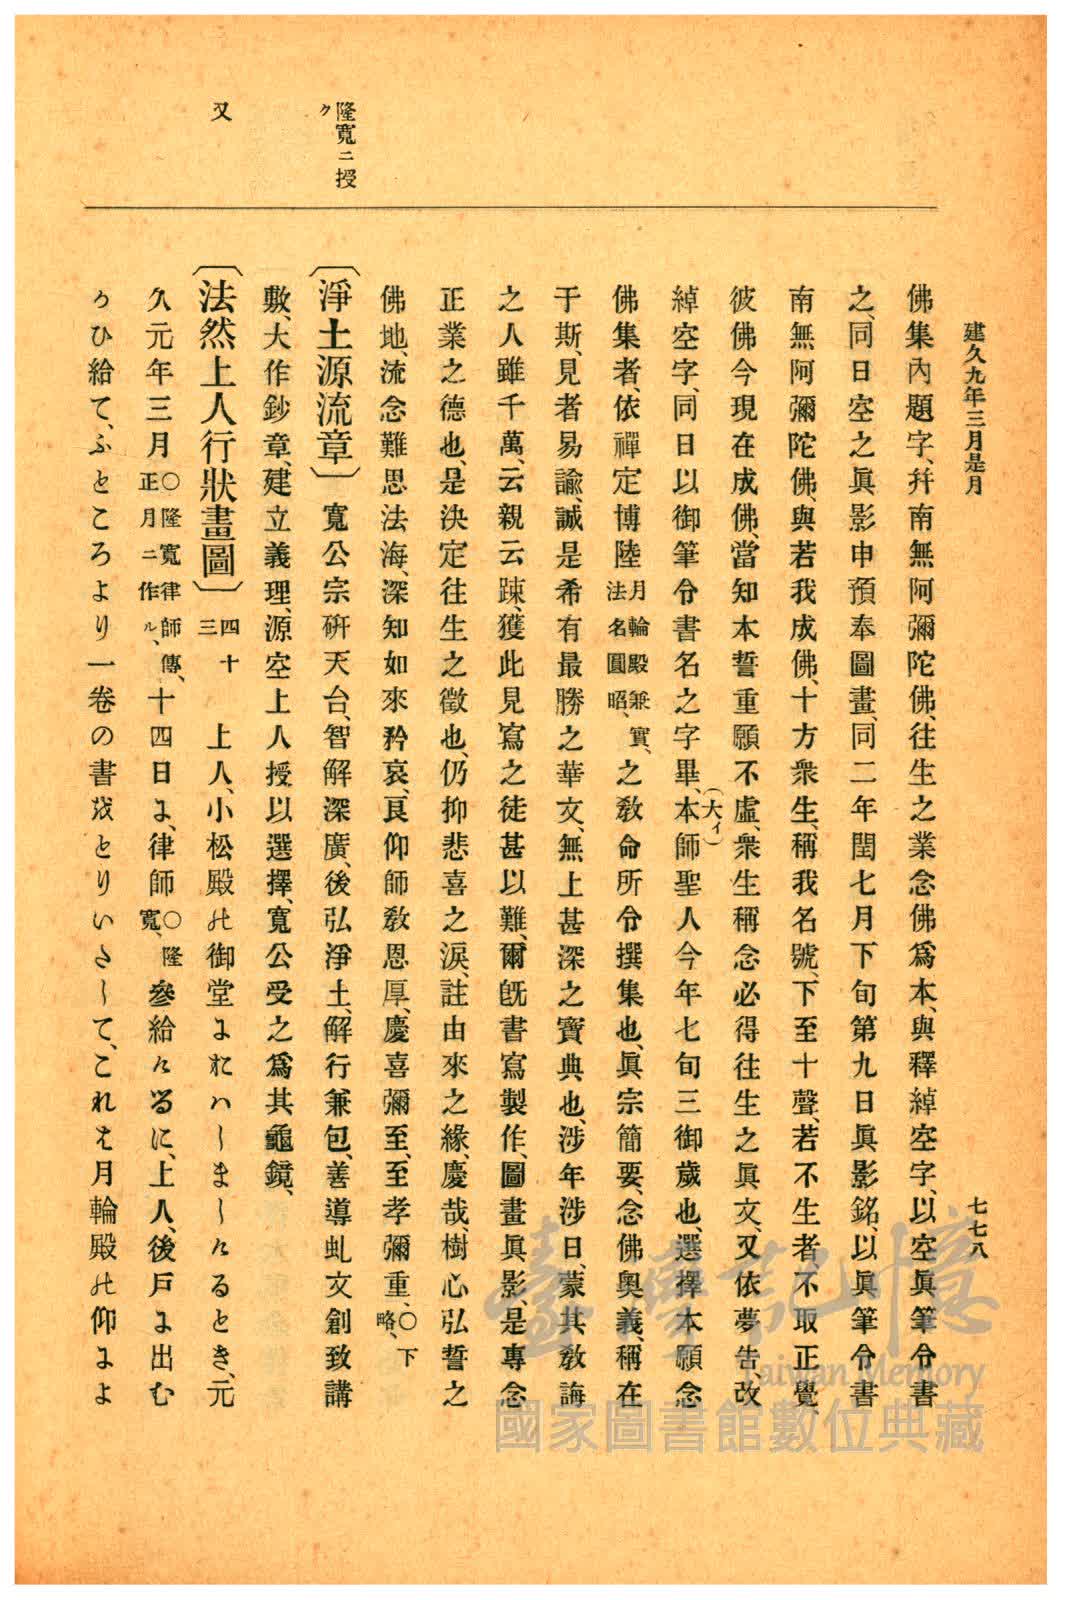 建久九年三月是月
七七八
隆寬ニ授
ク
又
佛集內題字、幷南無阿彌陀佛、往生之業念佛爲本、與釋綽空字、以空眞筆令書
之、同日空之眞影申預奉圖畫、同二年閏七月下旬第九日眞影銘、以眞筆令書
南無阿彌陀佛、與若我成佛、十方衆生、稱我名號、下至十聲、若不生者不取正覺、
彼佛今現在成佛、當知本誓重願不虛、衆生稱念必得往生之眞文、又依夢告、改
綽空字、同日以御筆令書名之字畢、本(大イ)師聖人今年七旬三御歲也、選擇本願念
佛集者、依禪定博陸月輪殿兼實、法名圓昭、之敎命所令撰集也、眞宗簡要、念佛奧義、稱在
于斯、見者易諭、誠是希有最勝之華文、無上甚深之寶典也、涉年涉日、蒙其敎誨
之人雖千萬、云親云踈、獲此見寫之徒甚以難、爾旣書寫製作、圖畫眞影、是專念
正業之德也、是決定往生之徵也、仍抑悲喜之淚、註由來之緣、慶哉、樹心弘誓之
佛地、流念難思法海、深知如來矜哀、良仰師敎恩厚、慶喜彌至、至孝彌重、○下略、
〔淨土源流章〕寬公宗硏天台、智解深廣、後弘淨土、解行兼包、善導虬文創致講
敷、大作鈔章、建立義理、源空上人、授以選擇、寬公受之爲其龜鏡、
〔法然上人行狀畫圖〕四十三 上人、小松殿の御堂におハしましけるとき、元
久元年三月○隆寬律師傳、正月ニ作ル、十四日に、律師○隆寬、參給けるに、上人、後戶に出む
かひ給て、ふところより一卷の書をとりいたして、これは月輪殿の仰によ
臺灣記憶
Taiwan Memory
國家圖書館數位典藏